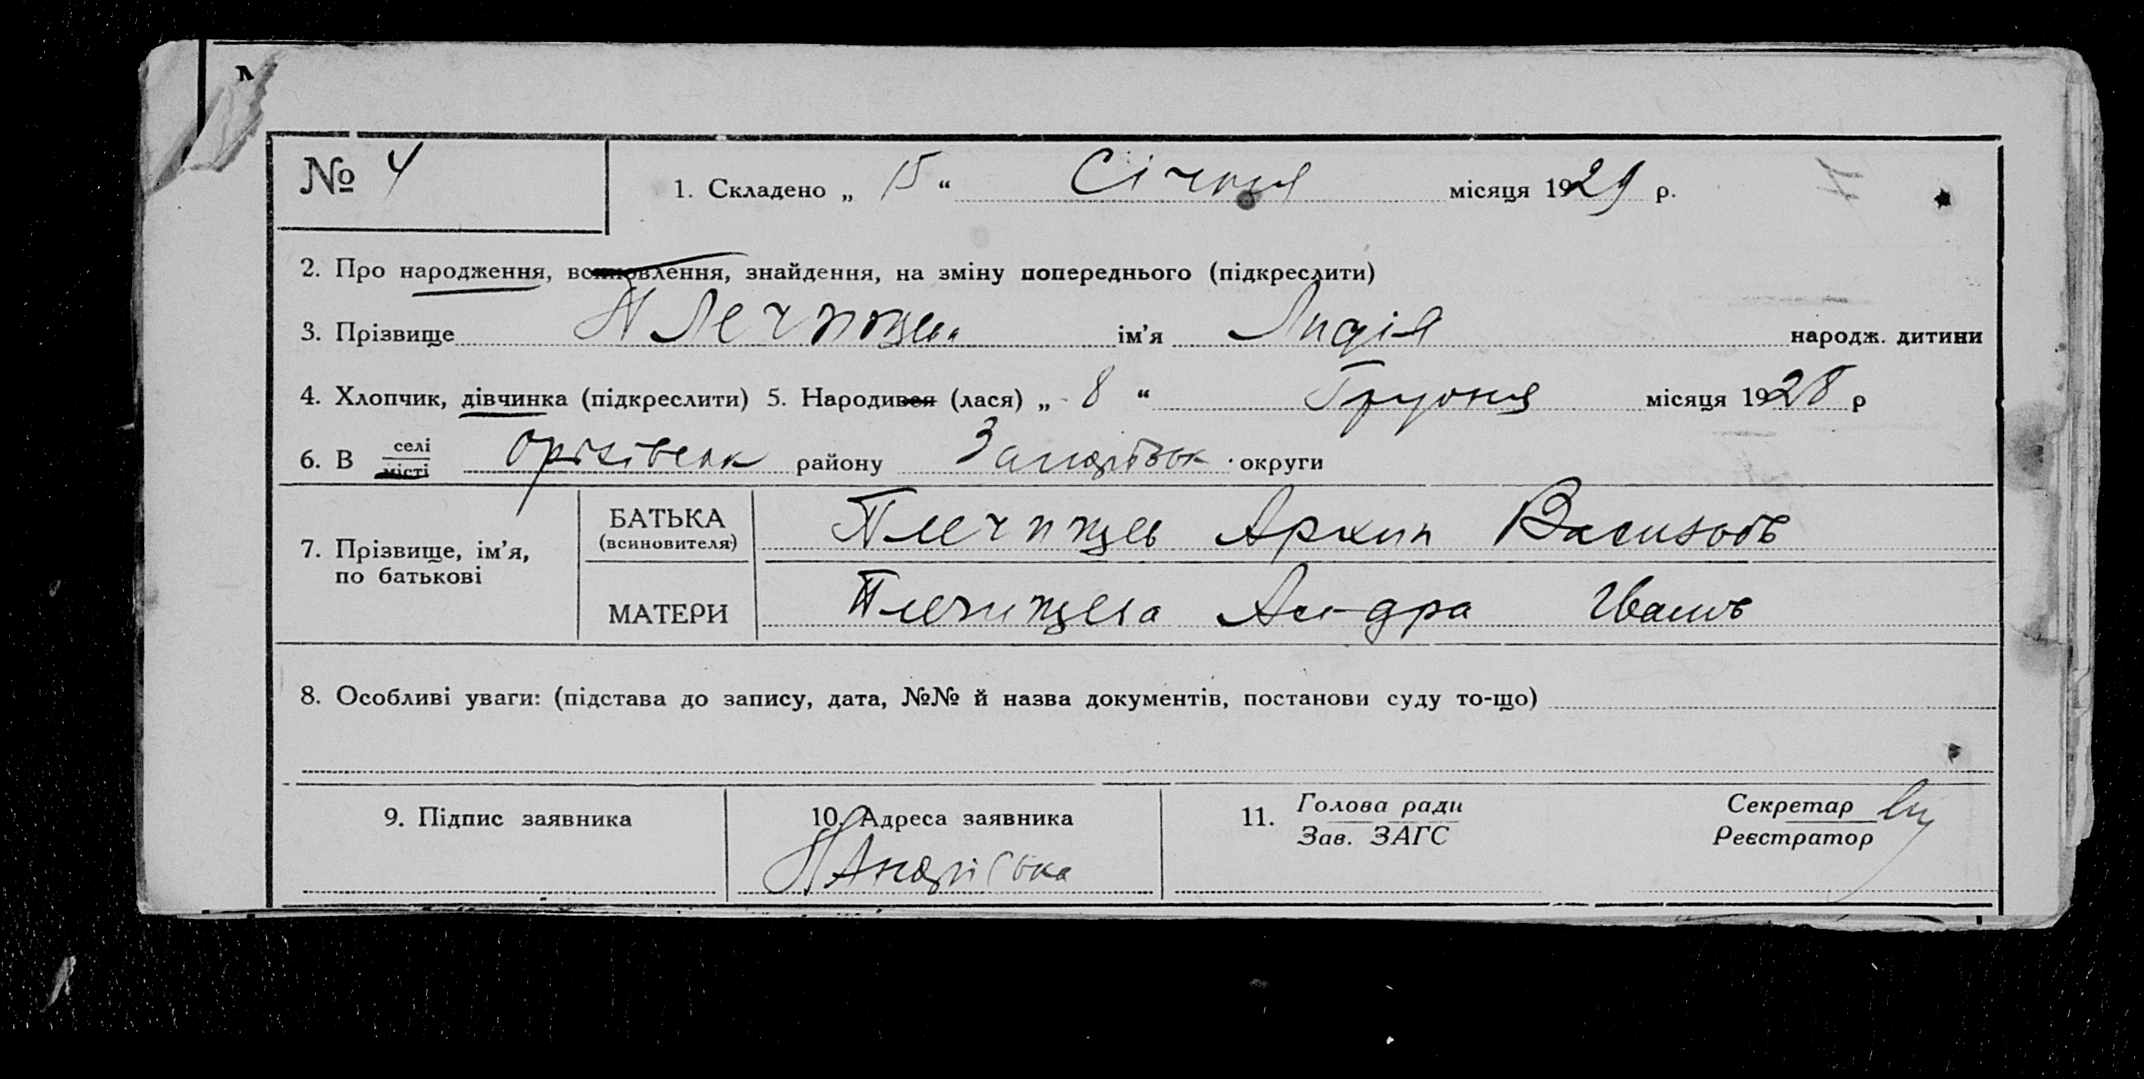 № 4 1. Складено „ 15 “ Січня місяця 1929 р.
2. Про народження, всиновлення, знайдення, на зміну попереднього (підкреслити)
3. Прізвище Плечищева ім’я Лидія народж. дитини
4. Хлопчик, дівчинка (підкреслити) 5. Народився (лася) „ 8 “ Грудня місяця 1928 р
6. В селі місті району округи
7. Прізвище, ім’я, по батькові
БАТЬКА (всиновителя) Плечищев Архип
МАТЕРИ Плечищева
8. Особливі уваги: (підстава до запису, дата, №№ й назва документів, постанови суду то-що)
9. Підпис заявника 10. Адреса заявника 11. Голова ради Секретар
Зав. ЗАГС Реєстратор